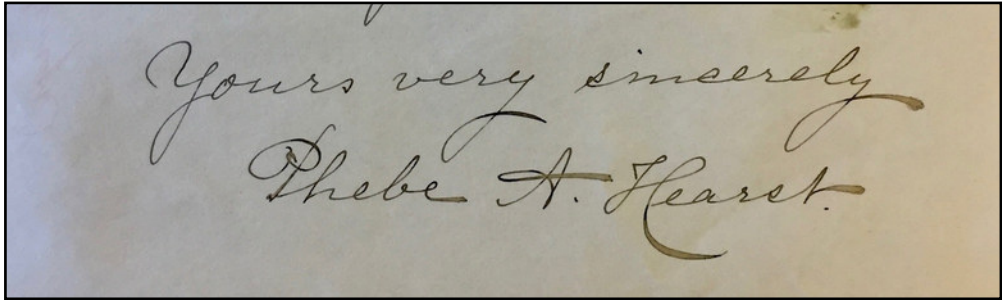 Yours very sincerely
Phebe A. Hearst.